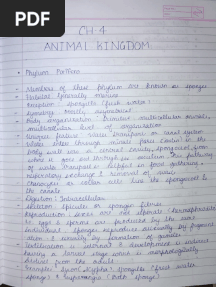 PDF
CH 4
ANIMAL KINGDOM
• Phylum Porifera
- Members of this Phylum are known as sponges
- Habitat Generally marine
- Exception : spongilla (fresh water)
- Symmetry Mostly asymmetrical
- Body organisation :
multicellular level of organisation
- Unique feature water transport or canal system
- Water enters through minute pores (ostia) in the
body wall into a central cavity, spongocoel, from
where it goes out through the osculum. This pathway
of water transport is helpful in food gathering,
respiratory exchange & removal of waste
- Choanocytes or collar cells line the spongocoel &
the canals
- Digestion : Intracellular
- Skeleton spicules or spongin fibres
- Reproduction sexes are not separate (hermaphrodite)
eggs & sperms are produced by the same
individual. Sponges reproduce asexually by fragmen
tation & sexually by formation of gametes
- Fertilisation is internal & development is indirect
having a larval stage which is morphologically
distinct from the adult
- Examples : Sycon (Scypha), Spongilla (fresh water
sponge) & Euspongia (bath sponge)